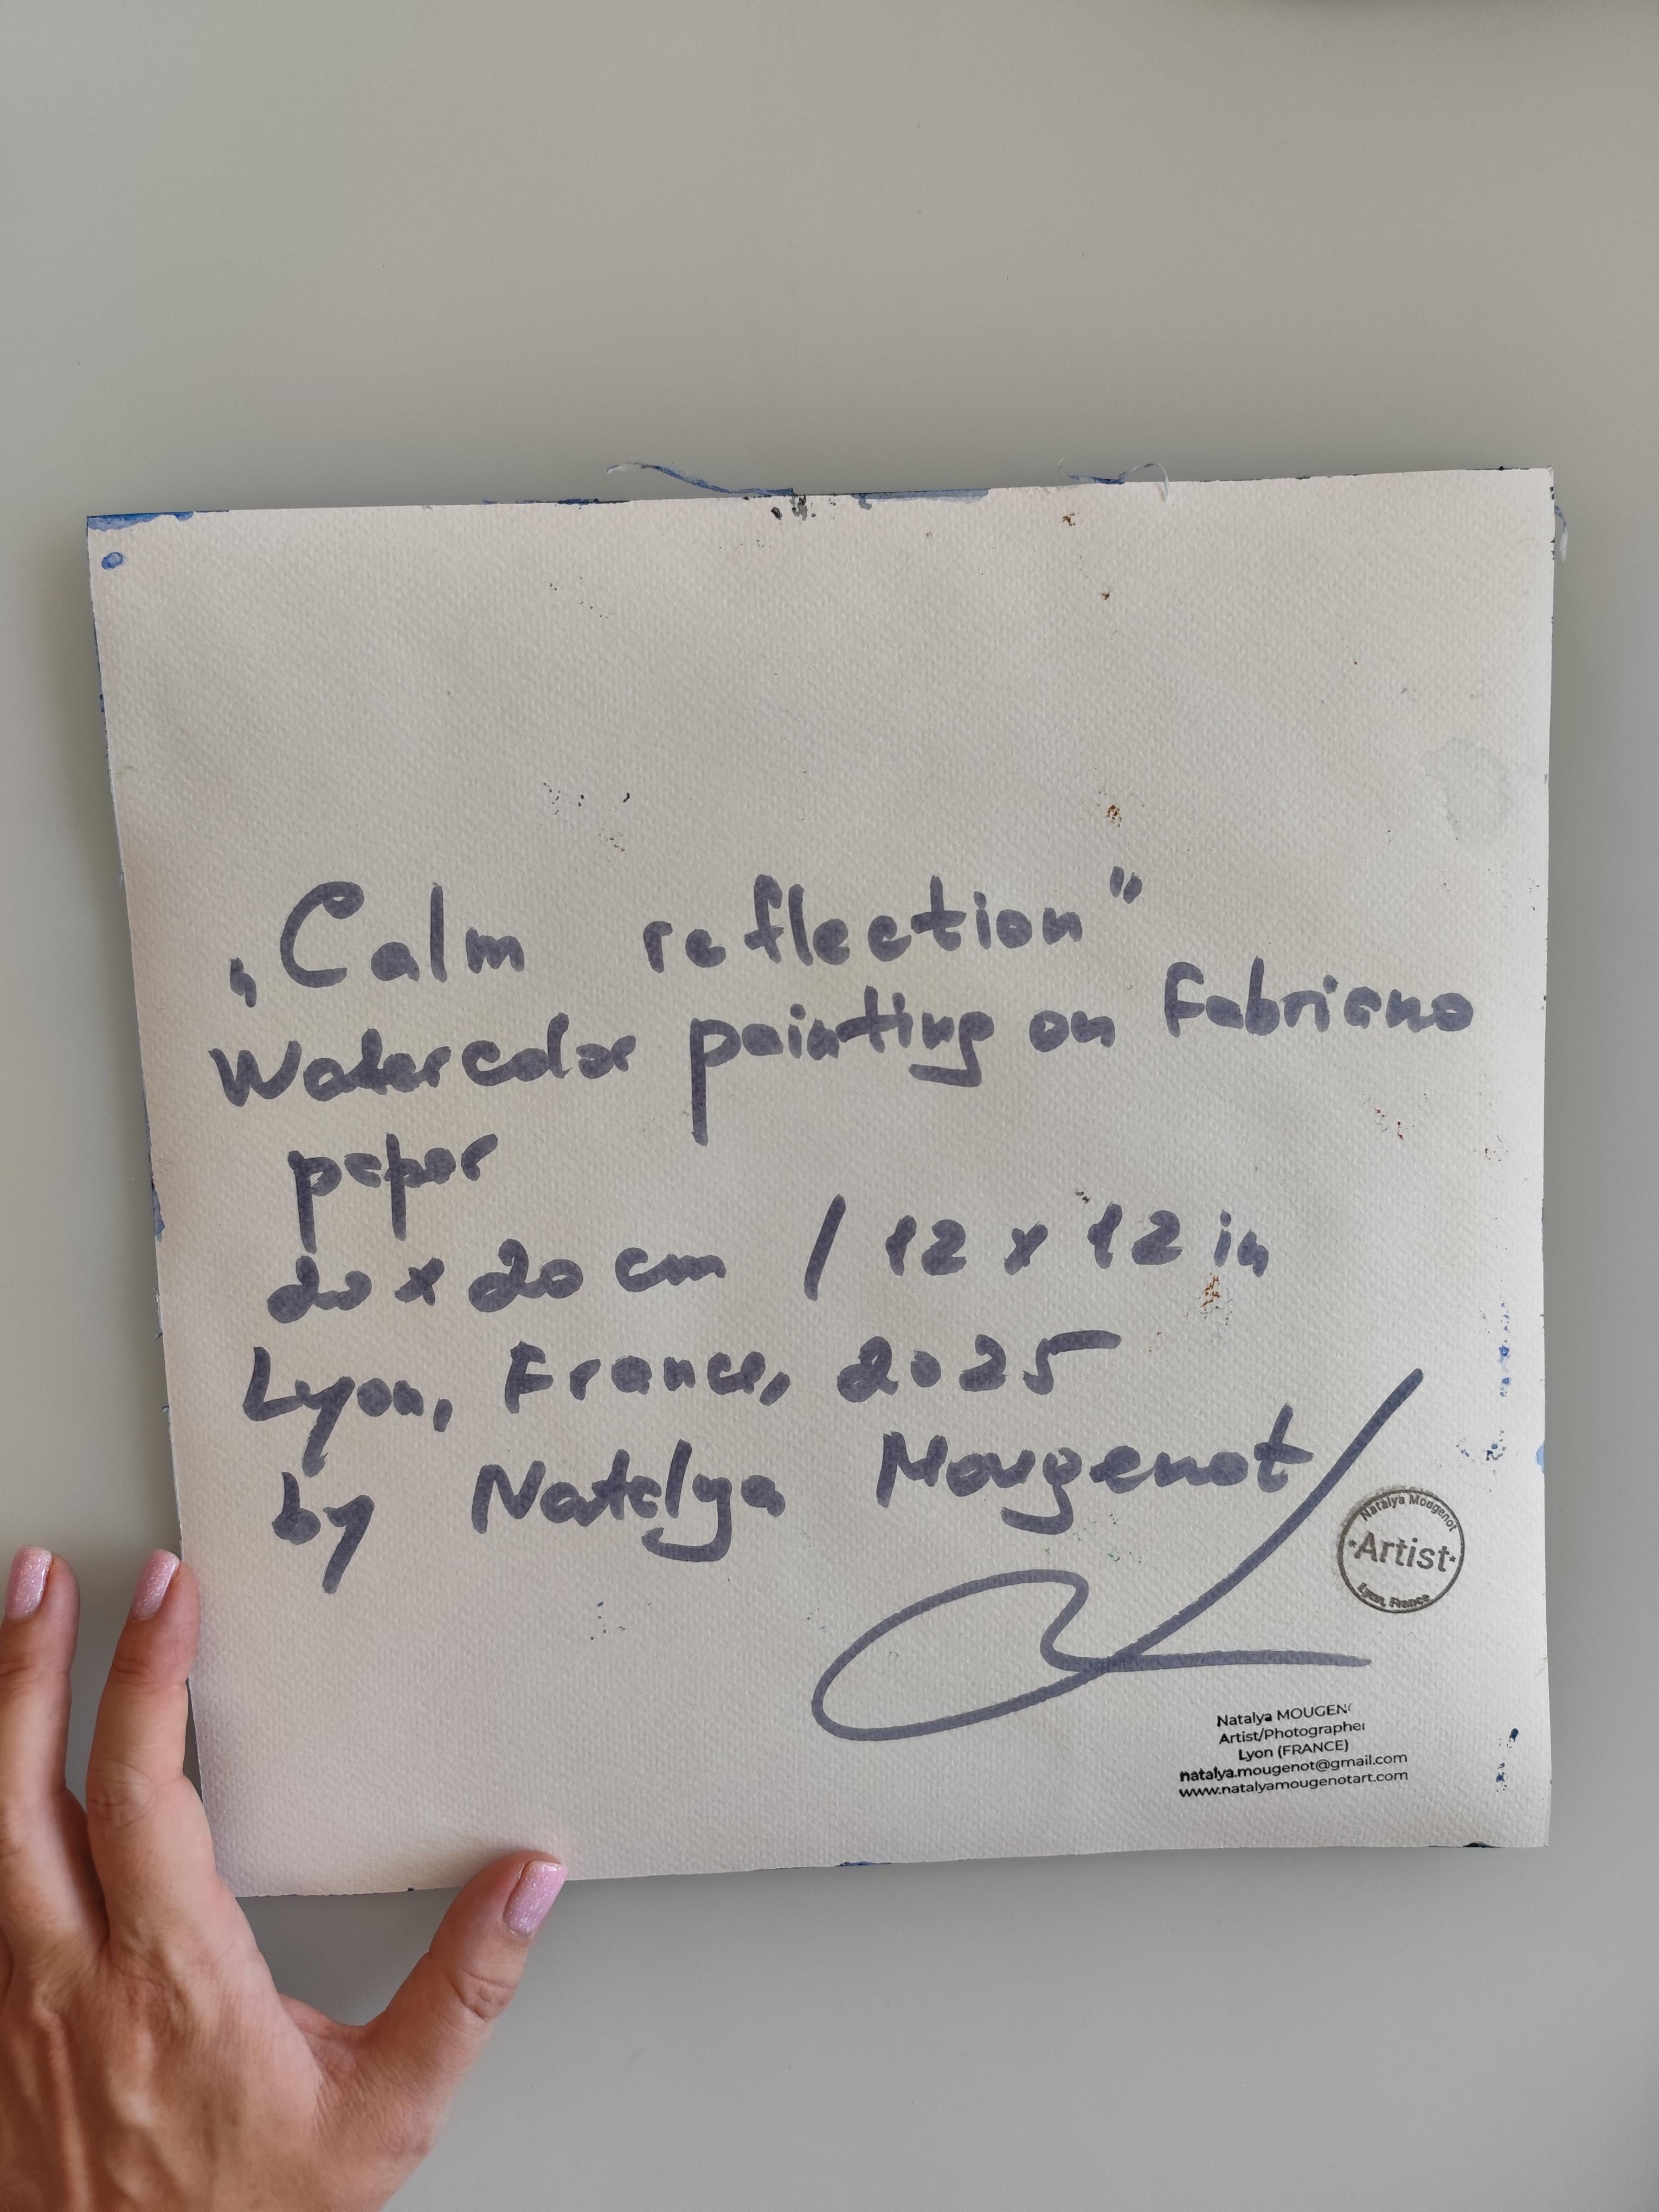 „Calm reflection"
Watercolor painting on Fabriano
paper
20 x 20 cm / 12 x 12 in
Lyon, France, 2025
by Natalya Mougenot
Natalya Mougenot
•Artist•
Lyon, France
Natalya MOUGEN
Artist/Photographer
Lyon (FRANCE)
natalya.mougenot@gmail.com
www.natalyamougenotart.com